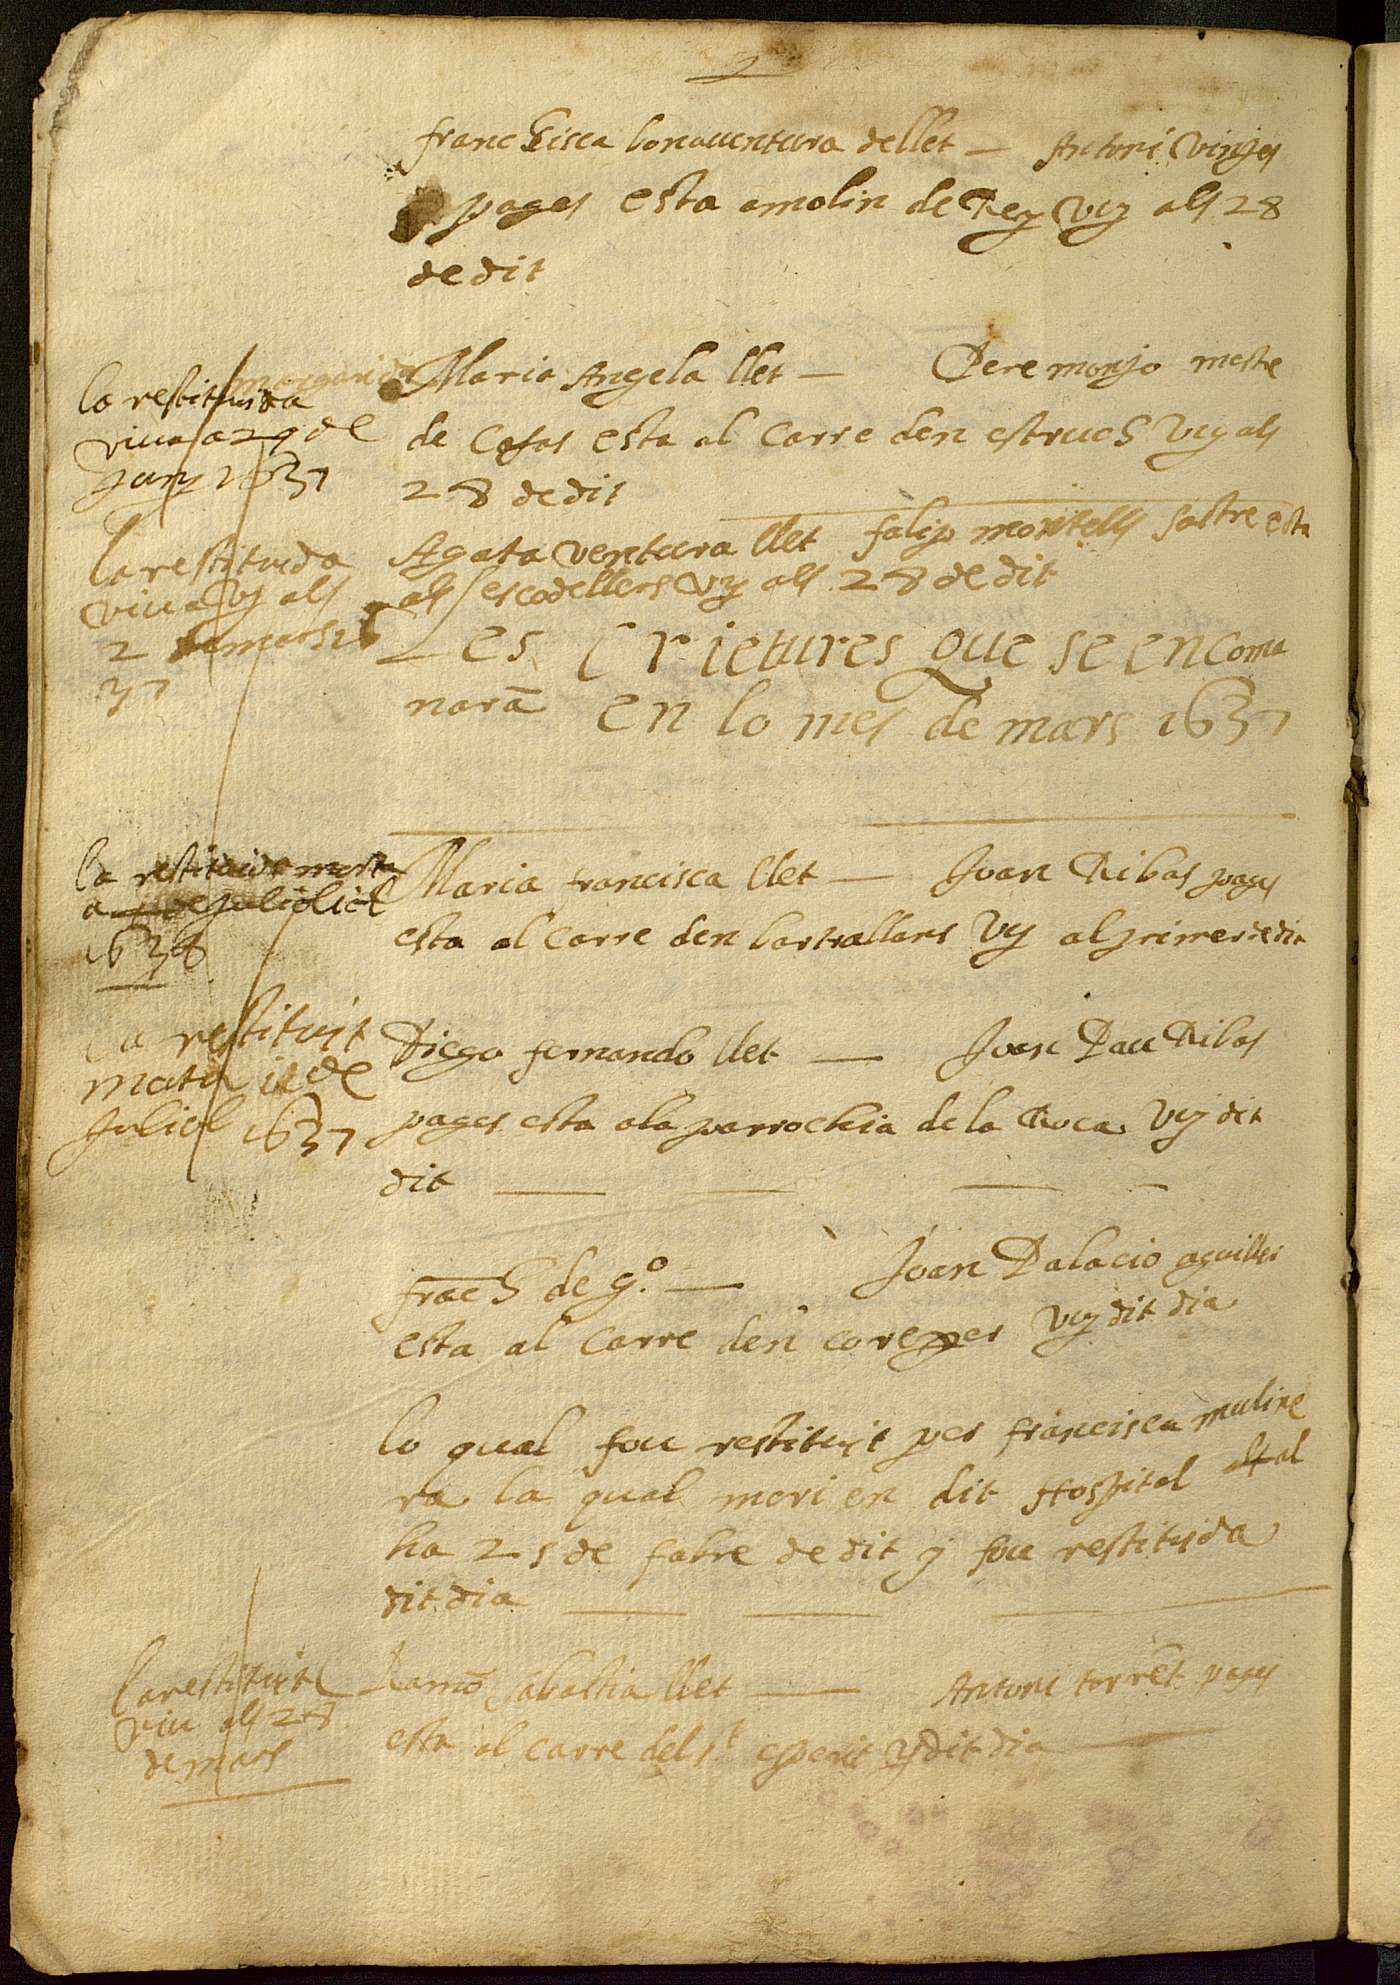 franchisca bonauentura de llet — Antoni vinyes
pages esta amolin de Rey vuy als 28
de dit
la restituida
viua a 29 de
Juny 1637
Maria Angela llet — Pere monjo mestre
de Casas esta al Carre den estruch vuy als
28 de dit
la restituida
viua vy als
2 de mars 16
37
Agata ventura llet falip montells sastre esta
als escodellers vy als 28 de dit
Les Crietures que se encoma
narā en lo mes de mars 1637
la restituida morta
a de Juliol
1638
Maria francisca llet — Juan Ribas pages
esta al Carre den bartrallans vy al primer de dit
la restituit
mort a 12 de
Juliol 1637
Diego fernando llet — Juan Pau Ribas
pages esta ala parrochia de la Roca vuy dit
dit
fraċh de g.º — Juan Palacio aguiller
esta al Carre den corejer vuy dit dia
lo qual fou restituit per francisca muline
ra la qual mori en dit Hospital
ha 25 de fabre de dit y fou restituida
dit dia
la restituit
viu als 28
de mars
Ramō sabastia llet — Antoni torrēt pages
esta al carre del st esperit vy dit dia